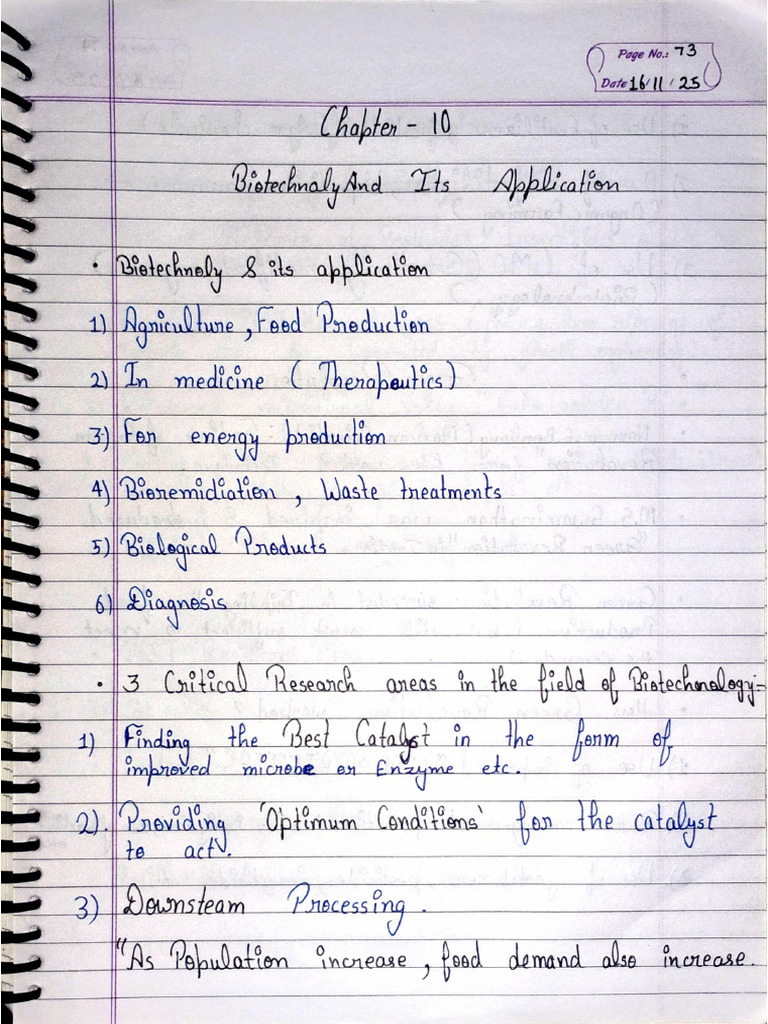 Page No.: 73
Date 16/11/25
Chapter - 10
Biotechnaly And Its Application
• Biotechnoly & its application
1) Agriculture, Food Production
2) In medicine (Therapeutics)
3) For energy production
4) Bioremidiation, Waste treatments
5) Biological Products
6) Diagnosis
• 3 Critical Research areas in the field of Biotechonology:-
1) Finding the Best Catalyst in the form of
improved microbe or Enzyme etc.
2). Providing 'Optimum Conditions' for the catalyst
to act.
3) Downsteam Processing.
"As Population increase, food demand also increase.